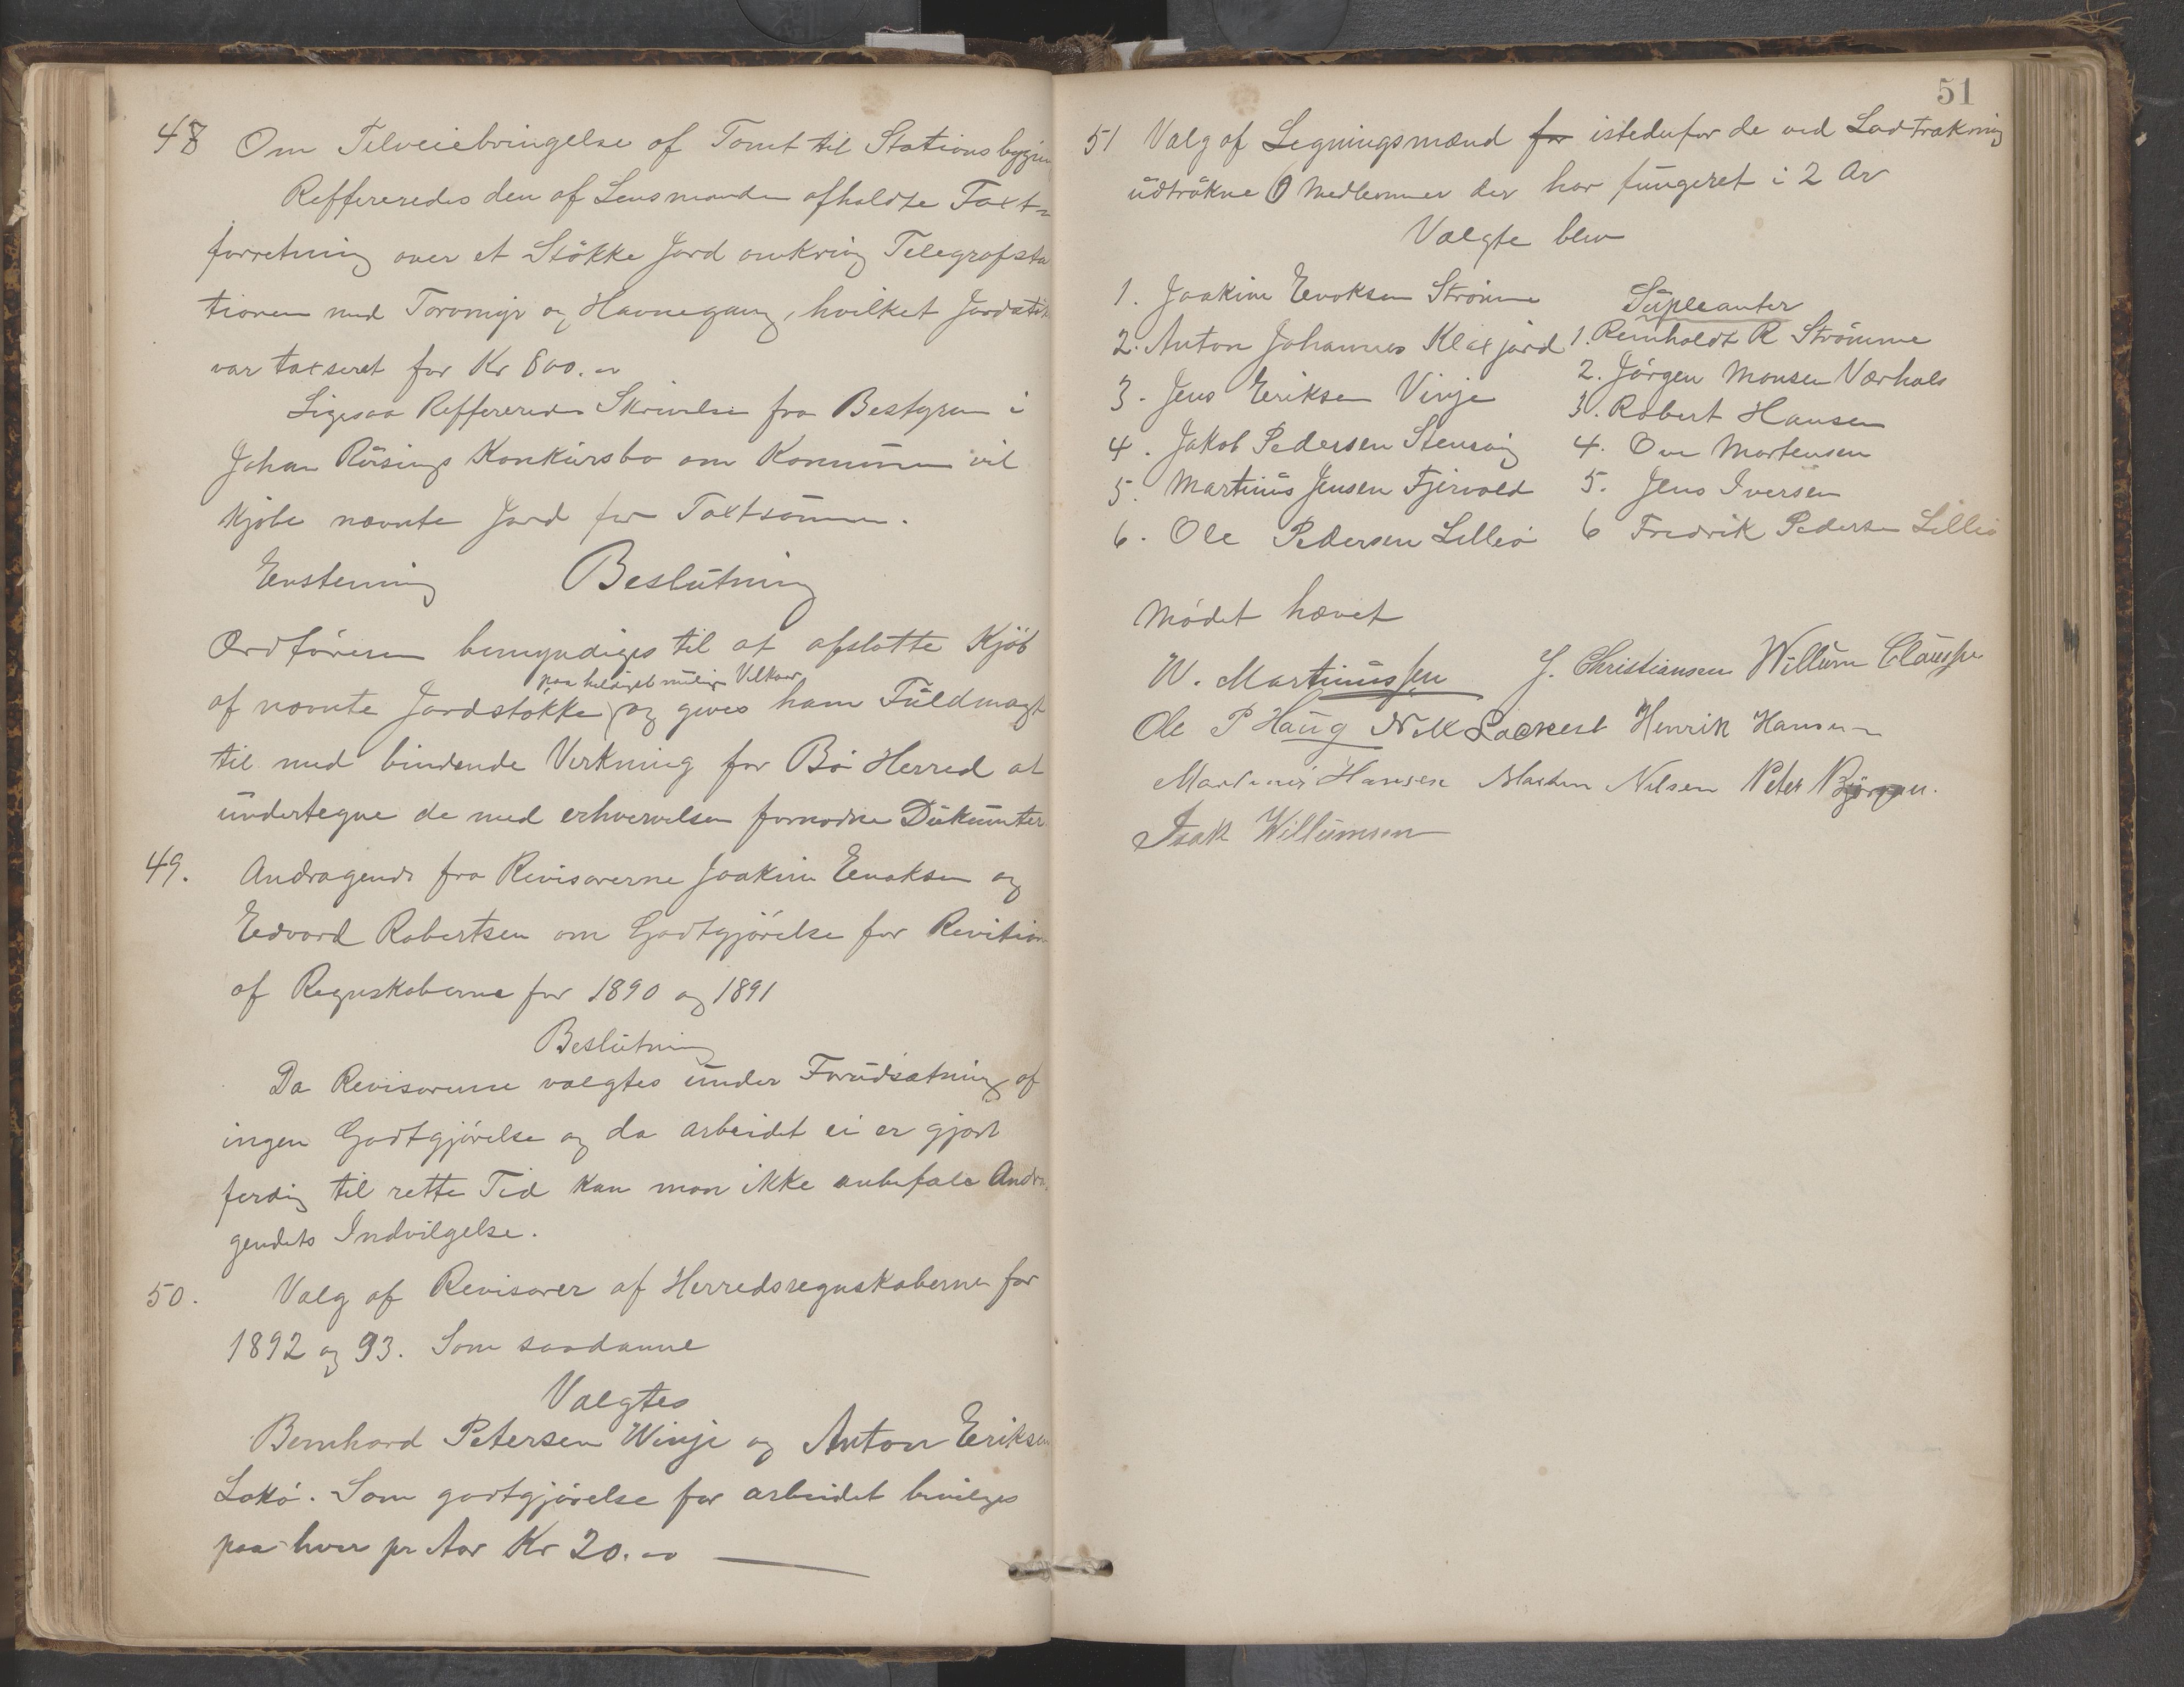 48 Om Tilveiebringelse af Tomt til Stationsbygnin
Reffereredes den af Lensmanden afholdte Taxt-
forretning over et Stökke Jord omkring Telegrafsta
tionen med Torvmyr og Havnegang, hvilket Jordstö
var taxseret for Kr 800.00
Ligesaa Reffereredes Skrivelse fra Bestyren i
Johan Rüsings Konkürsbo om Kommünen vil
kjöbe nævnte Jord for Taxtsümmen.
Enstemmig Beslütning
Ordföreren bemyndiges til at afslutte Kjöb
paa heldigst mülige Vilkaar
af nævnte Jordstökke og gives ham Füldmagt
til med bindende Virkning for Bö Herred at
ündertegne de med erhvervelsen fornödne Dükumter
49. Andragende fra Revisorerne Joakim Enoksen og
Edvard Robertsen om Godtgjörelse for Revition
af Regnskaberne for 1890 og 1891
Beslütning
Da Revisorerne valgtes ünder Forüdsætning af
ingen Godtgjörelse og da arbeidet ei er gjort
ferdig til rette Tid kan man ikke anbefale Andra
gendets Indvilgelse.
50. Valg af Revisorer af Herredsregnskaberne for
1892 og 93. Som saadanne
Valgtes
Bernhard Petersen Winje og Anton Eriksen
Lokö. Som godtgjörelse for arbeidet bevilges
paa hver pr Aar Kr 20.00
51
51 Valg af Legningsmænd for istedenfor de ved Lodtrækning
üdtrükne 6 Medlemmer der har füngeret i 2 Ar
Valgte blev
1. Joakim Enoksen Strömme
2. Anton Johannes Klaxjord
3. Jens Eriksen Vinje
4. Jakob Pedersen Stensvig
5. Martinüs Jensen Fjervold
6. Ole Pedersen Lilleö
Süpleanter
1. Reinholdt R Strömme
2. Jörgen MonsenVærhals
3. Robert Hansen
4. Ove Mortensen
5. Jens Iversen
6 Fredrik Pedersen Lilleö
Mödet hævet
W. Martinüssen J. Christiansen Willüm Claüssen
Ole P Haüg Henrik Hansen
Martinüs Hansen Martin Nilsen Peter
Isak Willümsen